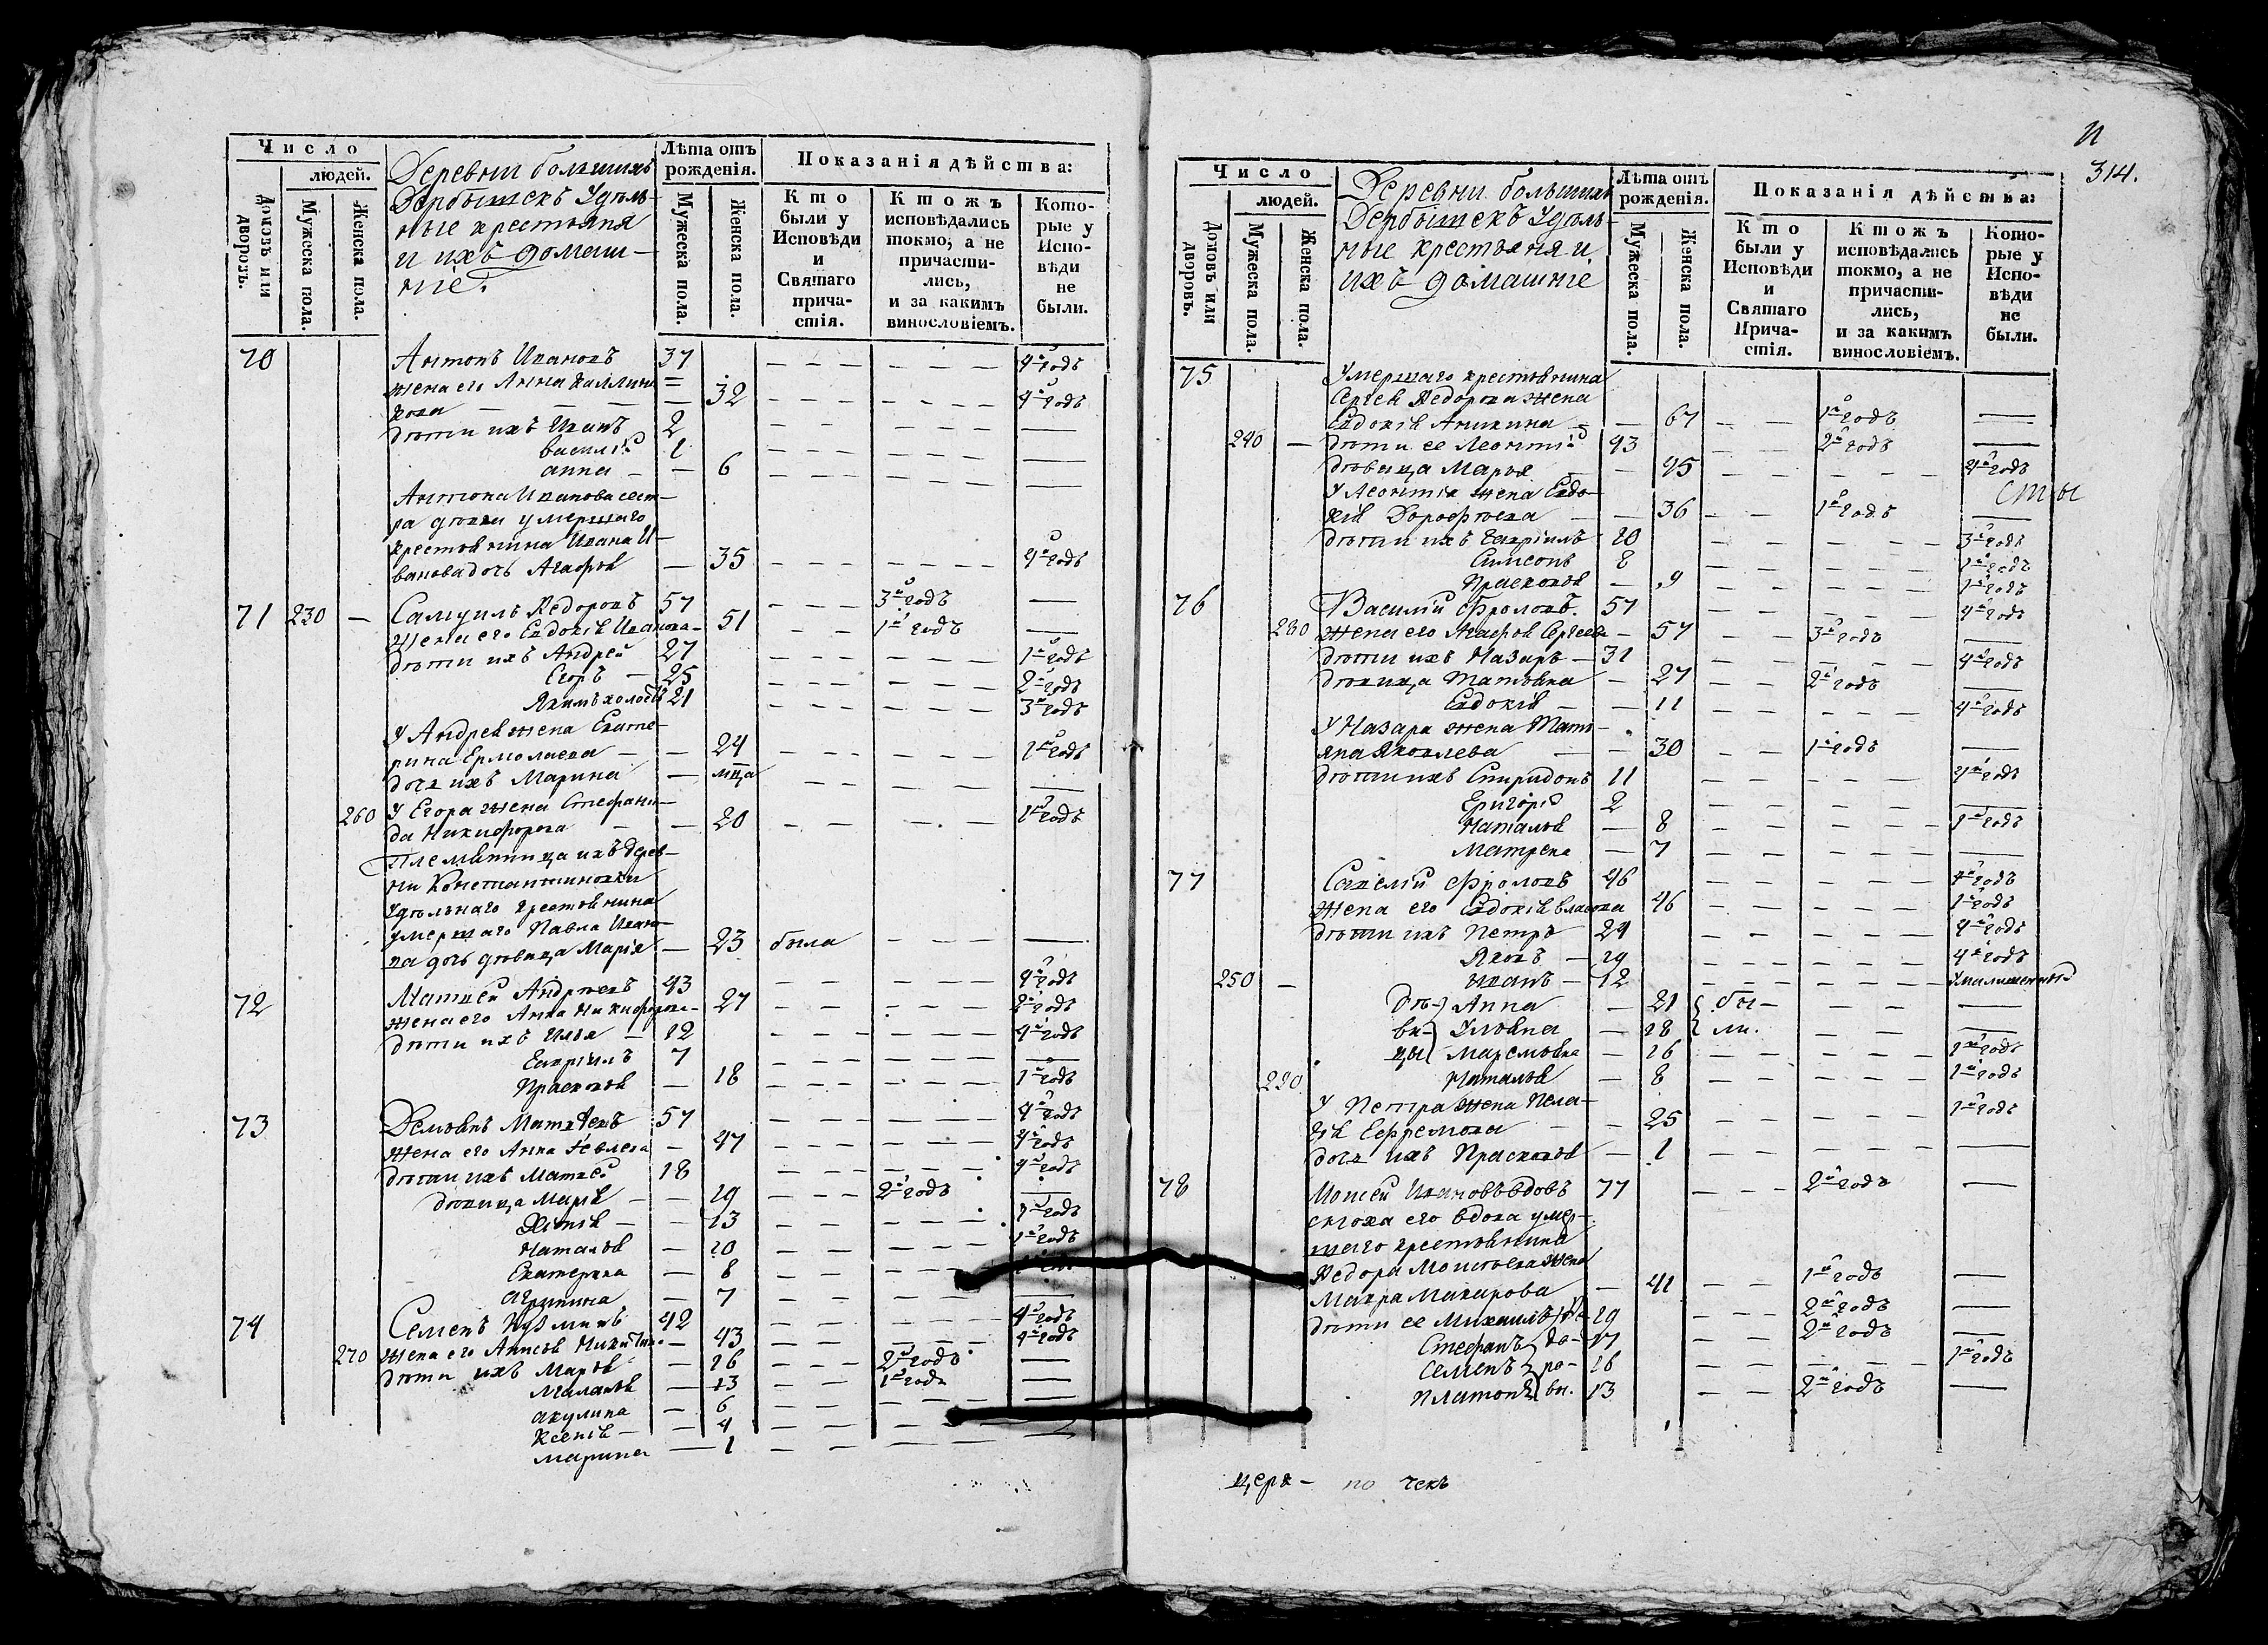 Число
людей.
Домовъ или дворовъ.
Мужеска пола.
Женска пола.
Деревни большихъ
Дербышекъ Удѣль-
ные крестьяня
и ихъ домаш-
ніе.
Лѣта отъ рожденія.
Мужеска пола.
Женска пола.
Показанія дѣйства:
Кто были у Исповѣди и Святаго прича-стія.
Ктожъ исповѣдались токмо, а не причасти-лись, и за какимъ винословіемъ.
Кото-рые у Испо-вѣди не были.
70 Антонъ Ивановъ 37 — — — — — — 4й годъ
жена его Анна
— 32 — — — — — — 4й годъ
дѣти ихъ Иванъ 2 — — — — — — —
василій 1 — — — — — — —
анна — — 6 — — — — — — —
Антона Иванова сест-
ра дѣвка умершаго
крестьянина Ивана И-
ванова дочь Агафья — 35 — — — — — — 4й годъ
71 230 — Самуилъ Ѳедоровъ 57 — — — 3й годъ —
Жена его Евдокія Иванова — 51 — — 1й годъ —
дѣти ихъ Андрей 27 — — — — — — 1й годъ
Егоръ — 25 — — — — — — 2й годъ
Якимъ холостъ 21 — — — — — — 3й годъ
У Андрея жена Екате-
рина Ермолаева — — 24 — — — — — — 1й годъ
дочь ихъ Марина — мца — — — — — — —
260 У Егора жена Стефани-
да Никифорова — — 20 — — — — — 1й годъ
Племянница ихъ дерев-
ни Константиновки
Удѣльнаго крестьянина
умершаго Павла Ивано-
ва дочь дѣвица Марія — 23 была — — — —
72 Матвей Андреевъ 43 — — — — — — 4й годъ
жена его Анна Никифорова — 27 — — — — — — 2й годъ
дѣти ихъ Илья — 12 — — — — — — 4й годъ
Гавріилъ 7 — — — — — — —
Прасковья — 18 — — — — — — 1й годъ
73 Демьянъ Матвѣевъ 57 — — — — — — 4й годъ
жена его Анна — 47 — — — — — — 4й годъ
дѣти ихъ Матвей 18 — — — — — — 4й годъ
дѣвица Марья — — 19 — — — 2й годъ —
Ксенія — — 13 — — — — — 1й годъ
Наталья — 10 — — — — — 1й годъ
Екатерина — 8 — — — — —
агрипина — 7 — — — — — —
74 Семенъ Кузминъ 42 — — — — — — 4й годъ
270 жена его Анисья Никитина — 43 — — — — — — 4й годъ
дѣти ихъ Марья — 16 — — — 2й годъ —
Маланья — 13 — — 1й годъ —
акулина — 6 — — — — — — —
Ксенія — — 4 — — — — — — —
марина — 1 — — — — — —
И
314.
Число
людей.
Домовъ или дворовъ.
Мужеска пола.
Женска пола.
Деревни большихъ
Дербышекъ Удѣль-
ные крестьяня и
ихъ домашніе
Лѣта отъ рожденія.
Мужеска пола.
Женска пола.
Показанія дѣйства:
Кто были у Исповѣди и Святаго Прича-стія.
Ктожъ исповѣдались токмо, а не причасти-лись, и за какимъ винословіемъ.
Кото-рые у Испо-вѣди не были.
75 Умершаго крестьянина
Сергея Ѳедорова жена
Евдокія Аникина — — 67 — — 1й годъ —
240 — дѣти ее Леонтій 43 — — 2й годъ —
дѣвица Марья — — 45 — — — — 4й годъ
У Леонтія жена Евдо-
кія Дорофѣева — — 36 — — 1й годъ —
сты
дѣти ихъ Гавріилъ 10 — — — — — 3й годъ
Симеонъ 8 — — — — — 1й годъ
Прасковья — 9 — — — — — 1й годъ
76 Василій Фроловъ. 57 — — — — — 4й годъ
280 жена его Агафья Сергеева — 57 — — 3й годъ —
дѣти ихъ Назаръ — 31 — — — — — 4й годъ
дѣвица Татьяна — 27 — — 2й годъ —
Евдокія — — 11 — — — — — 4й годъ
У Назара жена Тать-
яна Яковлева — — 30 — — 1й годъ —
дѣти ихъ Спиридонъ 11 — — — — — 4й годъ
Григорій 2 — — — — — —
Наталья — 8 — — — — — 1й годъ
Матрена — 7 — — — — — —
77 Савелій Фроловъ 46 — — — — — 4й годъ
жена его Евдокія Власова 46 — — — — — 1й годъ
дѣти ихъ Петръ 24 — — — — — 4й годъ
Яковъ — 19 — — — — — 4й годъ
250 — иванъ — 12 — — — — — — Умалишенный
дѣ-) Анна — 21 { бы- — — —
ви-) Ульяна — 18 { ли. — — —
цы) Маремьяна — 16 — — — — — 1й годъ
290 Наталья — 8 — — — — — 1й годъ
У Петра жена Пела-
гѣя Ефремова — — 25 — — — — — 1й годъ
дочь ихъ Прасковья — 1 — — — — — —
78 Моисей Ивановъ вдовъ 77 — — 2й годъ —
сноха его вдова умер-
шаго крестьянина
Ѳедора Моисѣева жена
Мавра Макарова — 41 — — 1й годъ —
дѣти ее Михаилъ 19 — — 2й годъ —
Стефанъ 17 — — 2й годъ —
Семенъ 16 — — — — — 1й годъ
Платонъ 13 — — 2й годъ —
церк- по чекъ